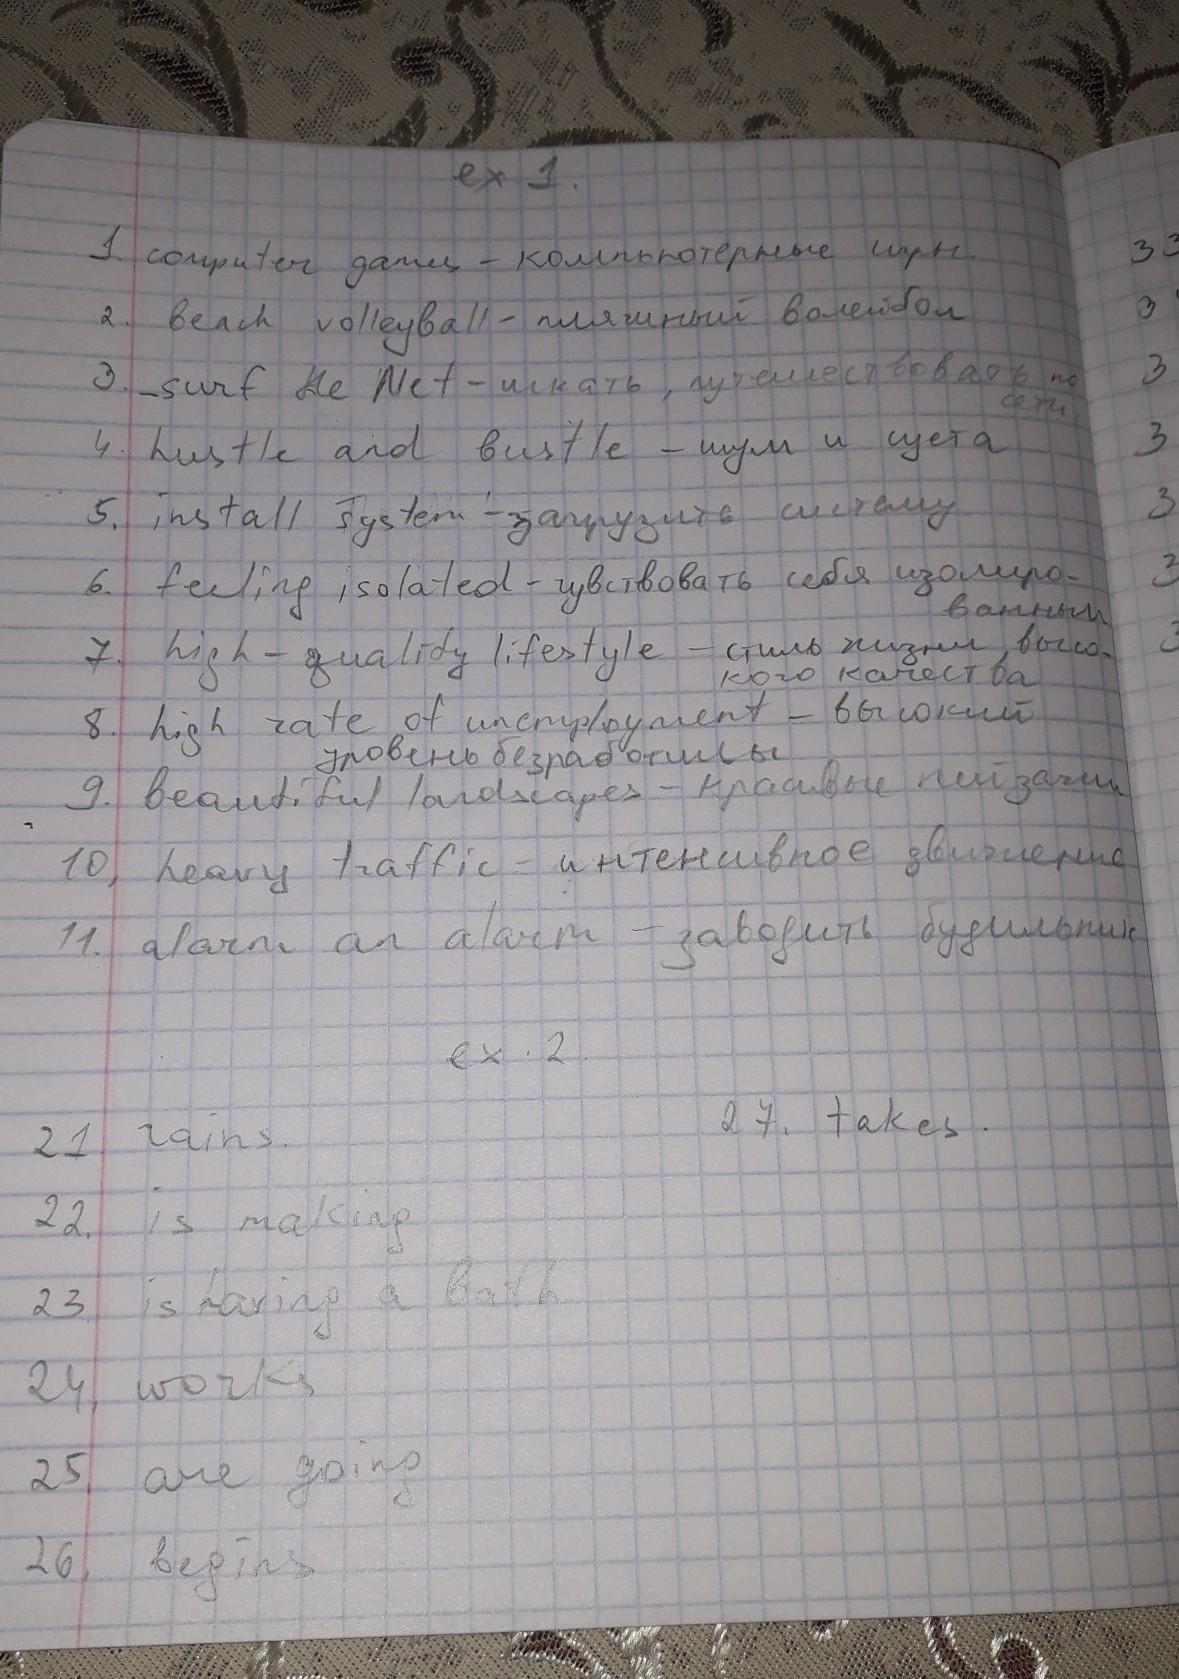 ex 1.
1. computer games - компьютерные игры.
2. beach volleyball - пляжный волейбол
3. surf the Net - искать, путешествовать по
сети
4. hustle and bustle - шум и суета
5. install system - загрузить систему
6. feeling isolated - чувствовать себя изолиро-
ванным
7. high-quality lifestyle - стиль жизни высо-
кого качества
8. high rate of unemployment - высокий
уровень безработицы
9. beautiful landscapes - красивые пейзажи
10, heavy traffic - интенсивное движение
11. alarm an alarm - заводить будильник
ex. 2.
21 rains.
27. takes.
22. is making
23 is having a bath
24, works
25. are going
26. begins
33
3
3
3
3
3
3